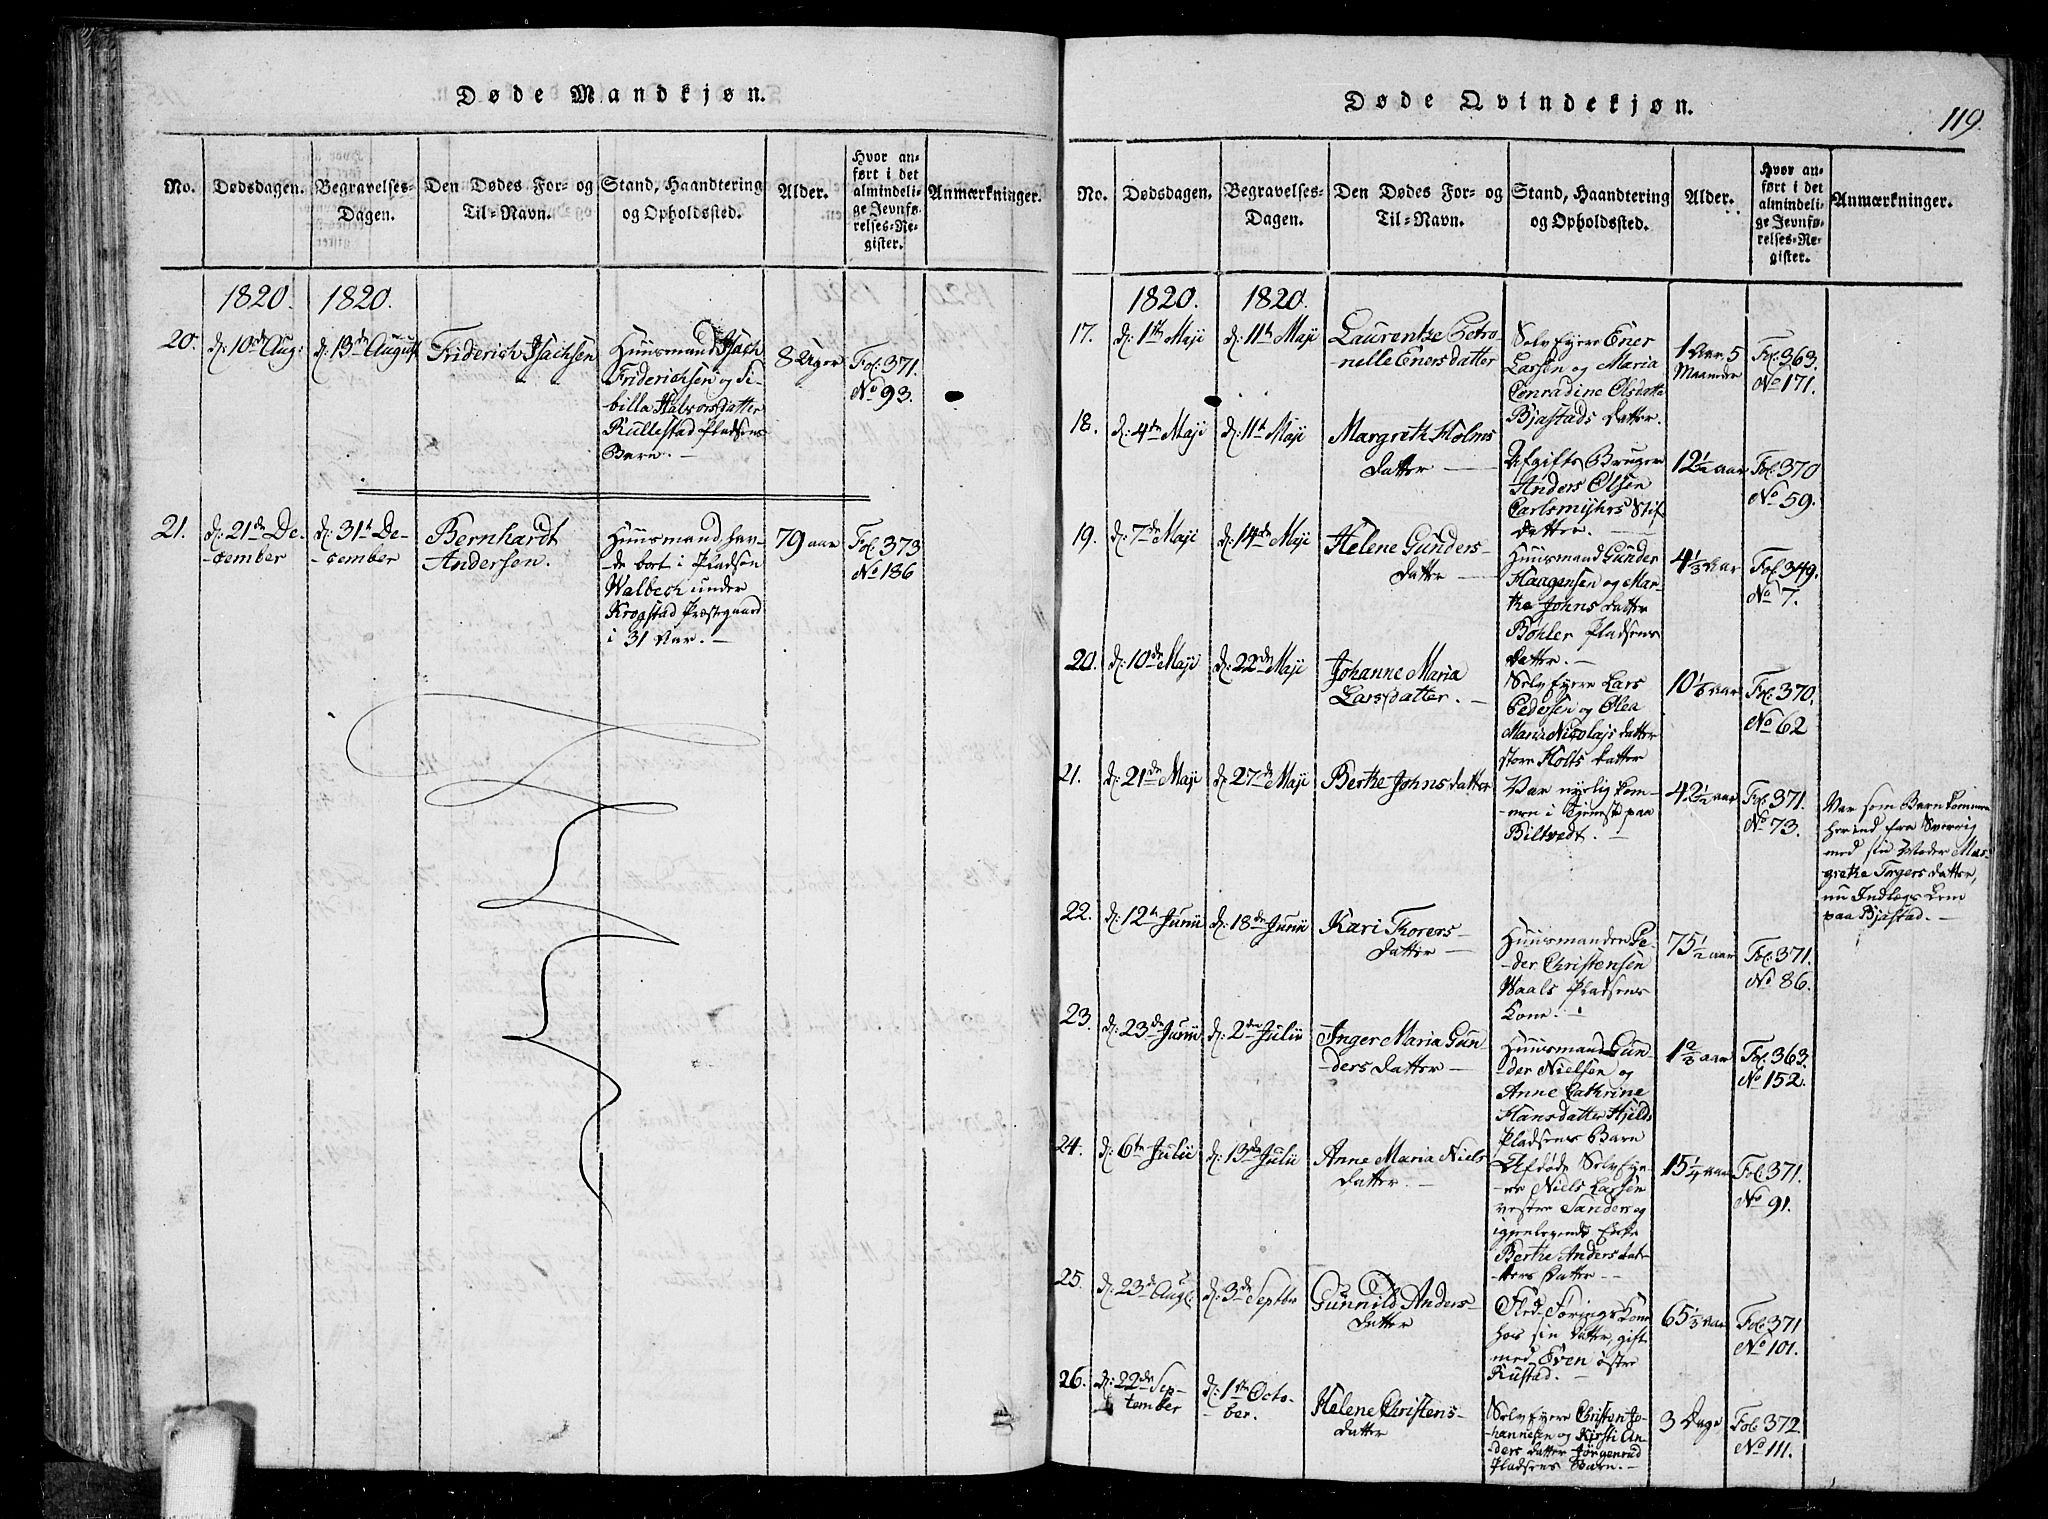 Døde Mandkjøn.
No.
Dødsdagen.
Begravelses-
Dagen.
Den Dødes For- og
Til-Navn.
Stand, Haandtering
og Opholdssted.
Alder.
Hvor an-
ført i det
almindeli-
ge Jevnfø-
relses-Re-
gister.
Anmærkninger.
1820.
1820.
20.
d: 10de Aug:
d: 13de August
Friderich Isachsen
Huusmand Isach
Friderichsen og Si-
billa Halvorsdatter
Kullestad Pladsens
Barn. -
8 Uger
Fol: 371.
No 93.
21.
d: 21de De-
cember
d: 31te De-
cember
Bernhardt
Andersen.
Huusmand, hav-
de bort i Pladsen
Walbech under
Krogstad Præstegaard
i 31 Aar. -
79 aar
Fol: 373
No 186
Døde Qvindekjøn.
119.
No.
Dødsdagen.
Begravelses-
Dagen.
Den Dødes For- og
Til-Navn.
Stand, Haandtering
og Opholdssted.
Alder.
Hvor an-
ført i det
almindeli-
ge Jevnfø-
relses-Re-
gister.
Anmærkninger.
1820.
1820.
17.
d: 1ste Maji
d: 11te Maji
Laurentze Petro-
nelle Enersdatter
Selvejere Ener
Larsen og Maria
Conradine Olsdatter
Bjastads datter.
1 Aar 5
Maaneder
Fol: 363.
No 171.
18.
d: 4de Maji
d: 11te Maji
Margreth Holms
datter
Afgifts Bruger
Anders Olsen
Carlsmyhrs Stif-
datter.
12 1/2 aar
Fol: 370
No 59.
19.
d: 7de Maji
d: 14de Maji
Helene Gunders-
datter
Huusmand Gunder
Haagensen og Mar-
the Johns datter
Bøhler Pladsens
datter. -
4 1/3 Aar
Fol: 349.
No 7.
20.
d: 10de Maji
d: 22de Maji
Johanne Maria
Larsdatter. -
Selvejere Lars
Pedersen og Olea
Maria Nicolajs datter
store Holts datter
10 1/6 aar
Fol: 370.
No 62
21.
d: 21de Maji
d: 27de Maji
Berthe Johns datter
Var nylig kom-
men i Tjeneste paa
Biltvedt. -
42 1/2 aar
Fol: 371.
No 73.
Var som Barn kommen
her ind fra Sverrig
med sin Moder Mar-
grethe Torgersdatter,
nu Indlægs Lem
paa Bjastad. -
22.
d: 12te Junii
d: 18de Junii
Kari Thorers-
datter
Huusmanden Pe-
der Christensen
Waals Pladsens
Kone. -
75 1/2 aar
Fol: 371.
No 86.
23.
d: 23de Junii
d: 2den Julii
Inger Maria Gun-
dersdatter -
Huusmand Gun-
der Nielsen og
Anne Cathrine
Hansdatter Hjelds
Pladsens Barn
1 2/3 aar
Fol: 363.
No 152.
24.
d: 6te Julii
d: 13de Julii
Anne Maria Niels
datter. -
Afdøde Selvejer-
e Niels Larsen
vestre Sander og
igjenlevende Enke
Berthe Anders dat-
ters datter -
15 1/4 aar
Fol: 371.
No 91.
25.
d: 23de Aug:
d: 3de Septbr
Gunnild Anders-
datter
Fled-Førings Kone
hos sin datter, gift
med Even østre
Rustad. -
65 1/3 aar
Fol: 371
No 101.
26.
d: 22de Sep-
tember
d: 1ste Octo-
ber.
Helene Christens-
datter
Selvejere Christen Jo-
hannesen og Kirsti An-
ders datter Jørgenrud
Pladsens Barn. -
3 Dage
Fol: 372.
No 111.